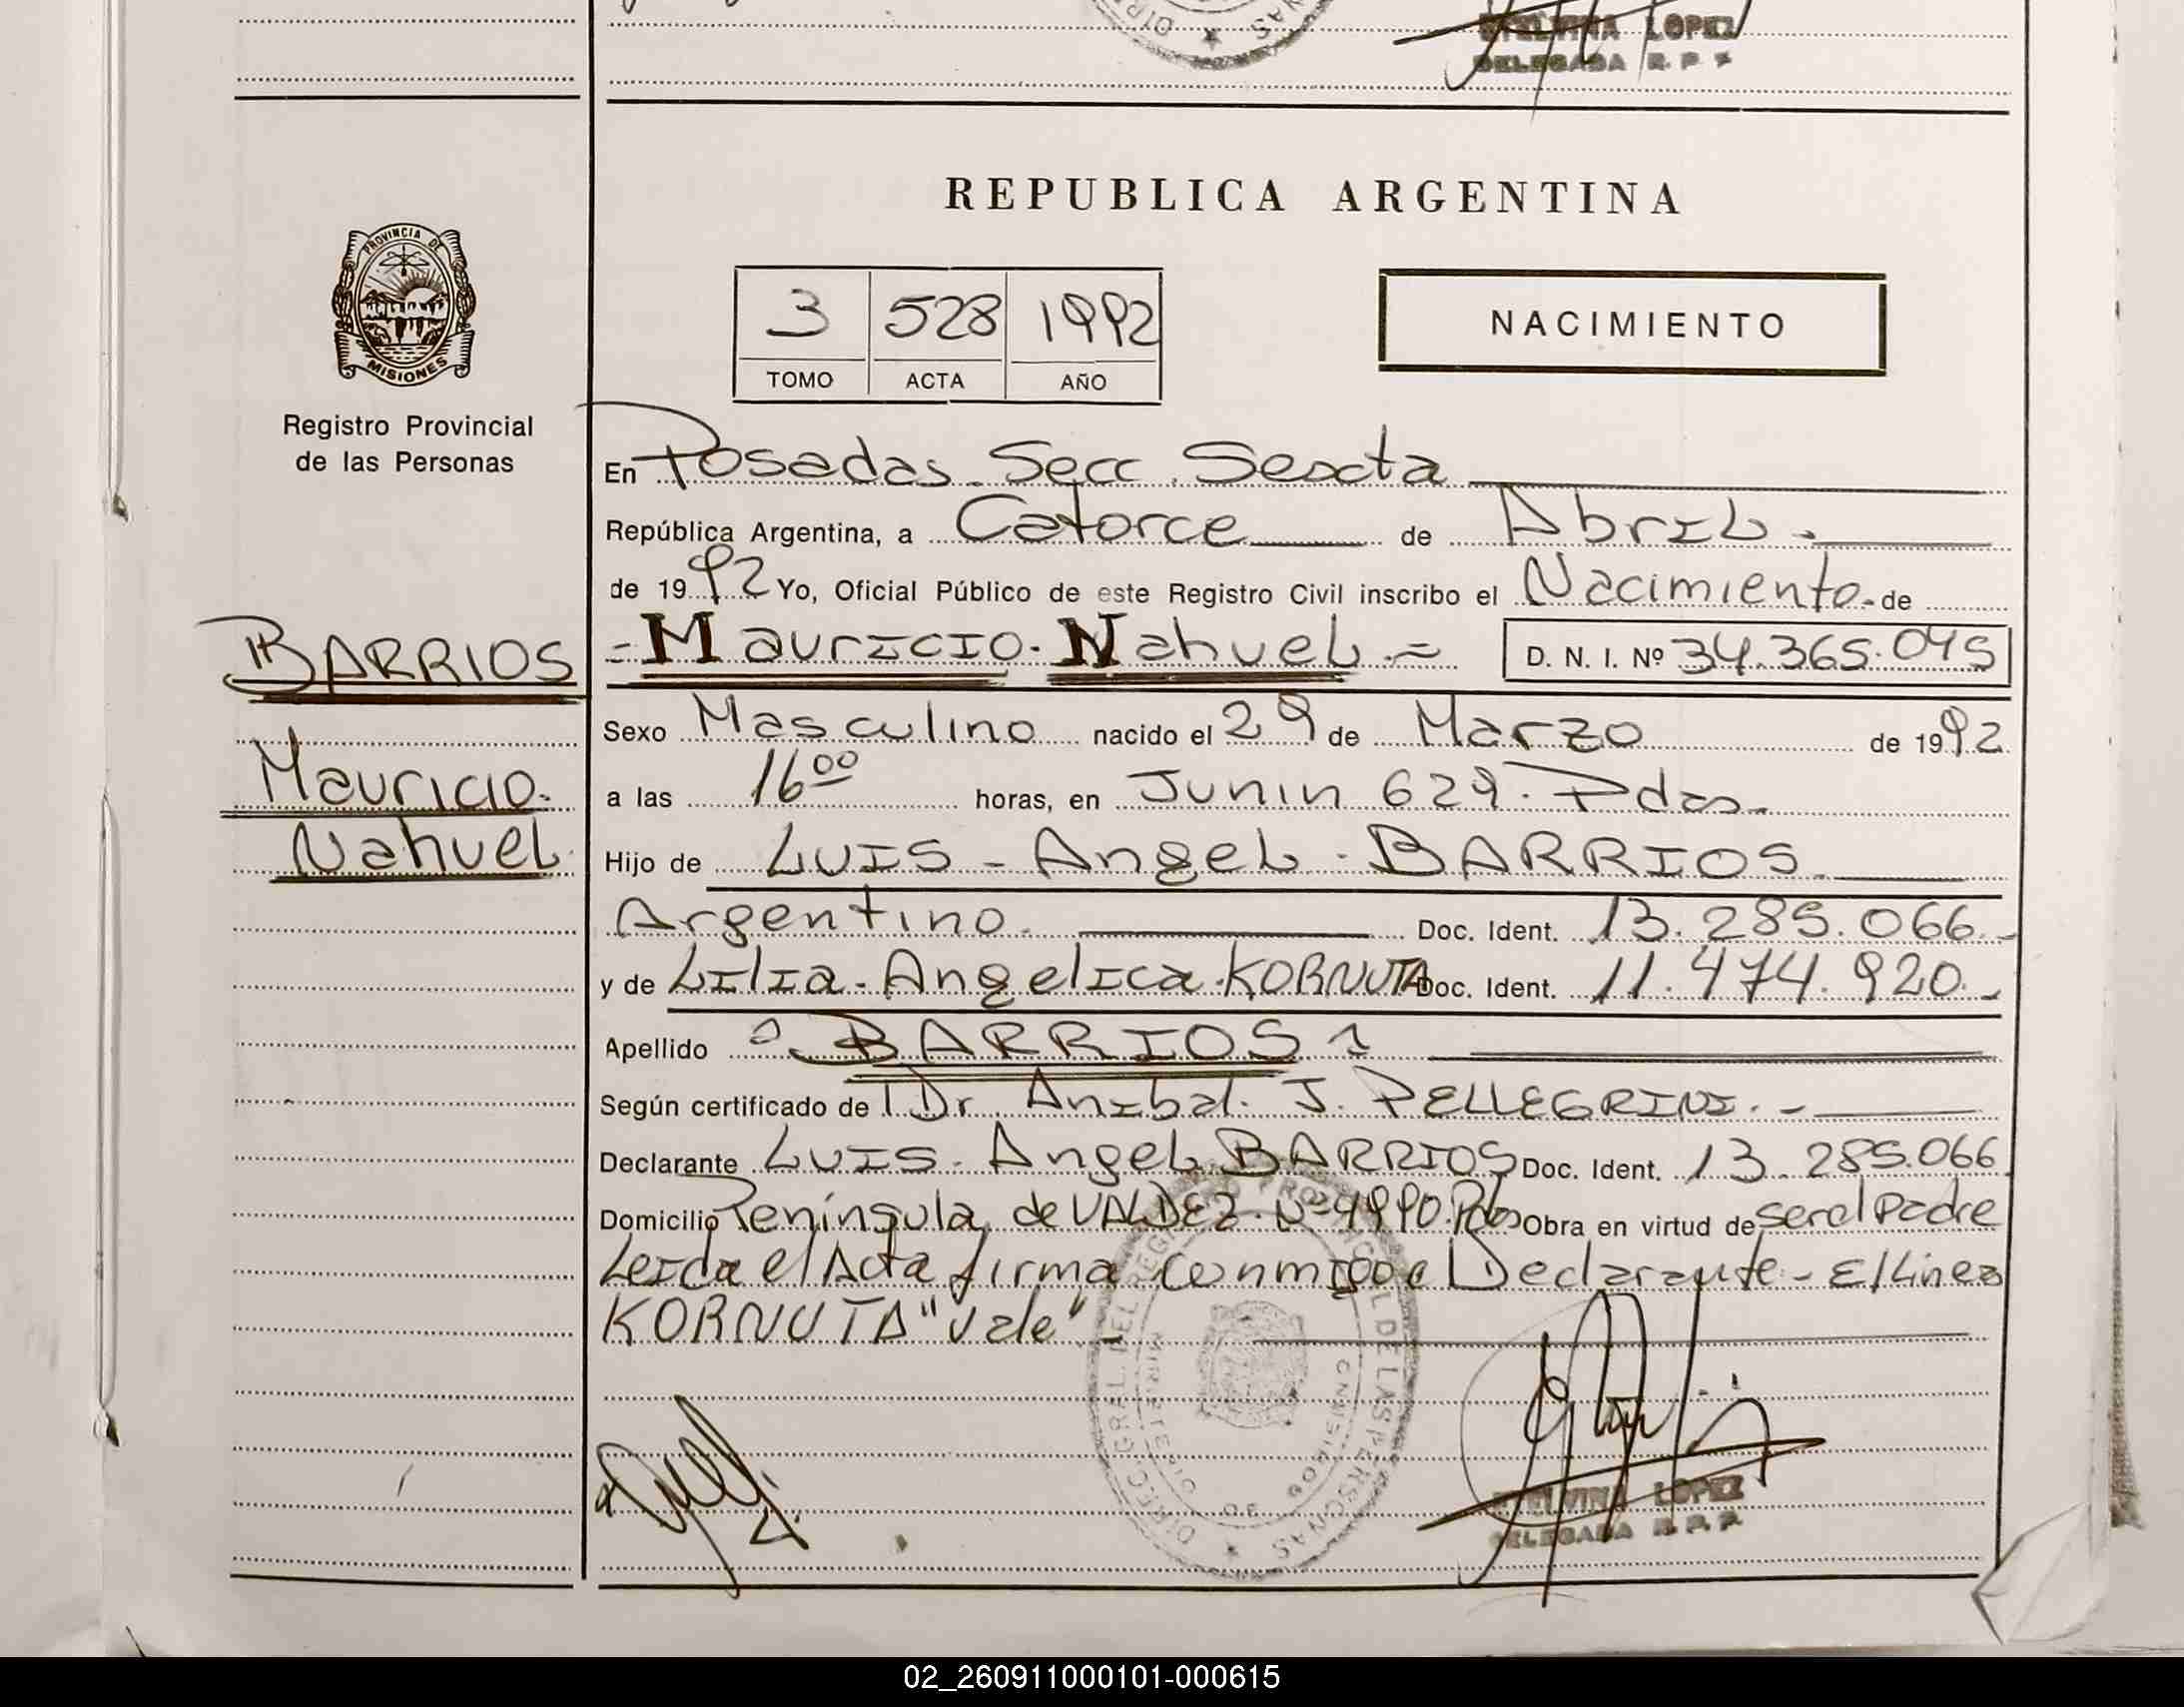 ETELVINA LOPEZ
DELEGADA R. P. P.
REPUBLICA ARGENTINA
PROVINCIA DE
MISIONES
Registro Provincial
de las Personas
3 528 1992
TOMO ACTA AÑO
NACIMIENTO
En Posadas. Secc. Sexta
República Argentina, a Catorce de Abril.
de 1992 Yo, Oficial Público de este Registro Civil inscribo el Nacimiento. de
= Mauricio. Nahuel = D. N. I. Nº 34.365.045
BARRIOS
Mauricio.
Nahuel
Sexo Masculino nacido el 29 de Marzo de 1992
a las 16 00 horas, en Junin 629. Pdas.
Hijo de Luis - Angel - BARRIOS.
Argentino. Doc. Ident. 13.285.066.-
y de Lilia - Angelica - KORNUTA Doc. Ident. 11.474.920.-
Apellido BARRIOS
Según certificado de Dr. Anibal. J. PELLEGRINI. -
Declarante Luis - Angel BARRIOS Doc. Ident. 13.285.066
Domicilio Península de VALDEZ. Nº 4990. Pdas Obra en virtud de ser el Padre
Leida el Acta firma conmigo el Declarante - E/Linea
KORNUTA "Vale" -
DIREC. GRAL. DEL REGISTRO PROVINCIAL DE LAS PERSONAS
ETELVINA LOPEZ
DELEGADA R. P. P.
02_260911000101-000615